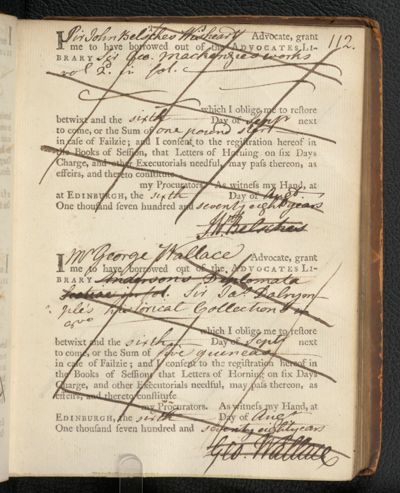 112.
I Sir John Belsches Wishart Advocate, grant
me to have borrowed out of the ADVOCATES LI-
BRARY Sir Geo. Mackenzies works
vol 2. in fol.
which I oblige me to restore
betwixt and the sixth Day of Sepr next
to come, or the Sum of one pound sterl.
in case of Failzie; and I consent to the registration hereof in
the Books of Session, that Letters of Horning on six Days
Charge, and other Executorials needful, may pass thereon, as
effeirs, and thereto constitute
my Procurators. As witness my Hand, at
at EDINBURGH, the sixth Day of Augt
One thousand seven hundred and seventy eight years
Belsches
I Mr George Wallace Advocate, grant
me to have borrowed out of the ADVOCATES LI-
BRARY Andersons Diplomata
Scotiae Sir Ja: Dalrym-
ples historical Collections in
8vo
which I oblige me to restore
betwixt and the sixth Day of Sepr next
to come, or the Sum of five guineas
in case of Failzie; and I consent to the registration hereof in
the Books of Session that Letters of Horning on six Days
Charge, and other Executorials needful, may pass thereon, as
effeirs, and thereto constitute
my Procurators. As witness my Hand, at
EDINBURGH, the sixth Day of Augt
One thousand seven hundred and seventy eight years
Geo. Wallace